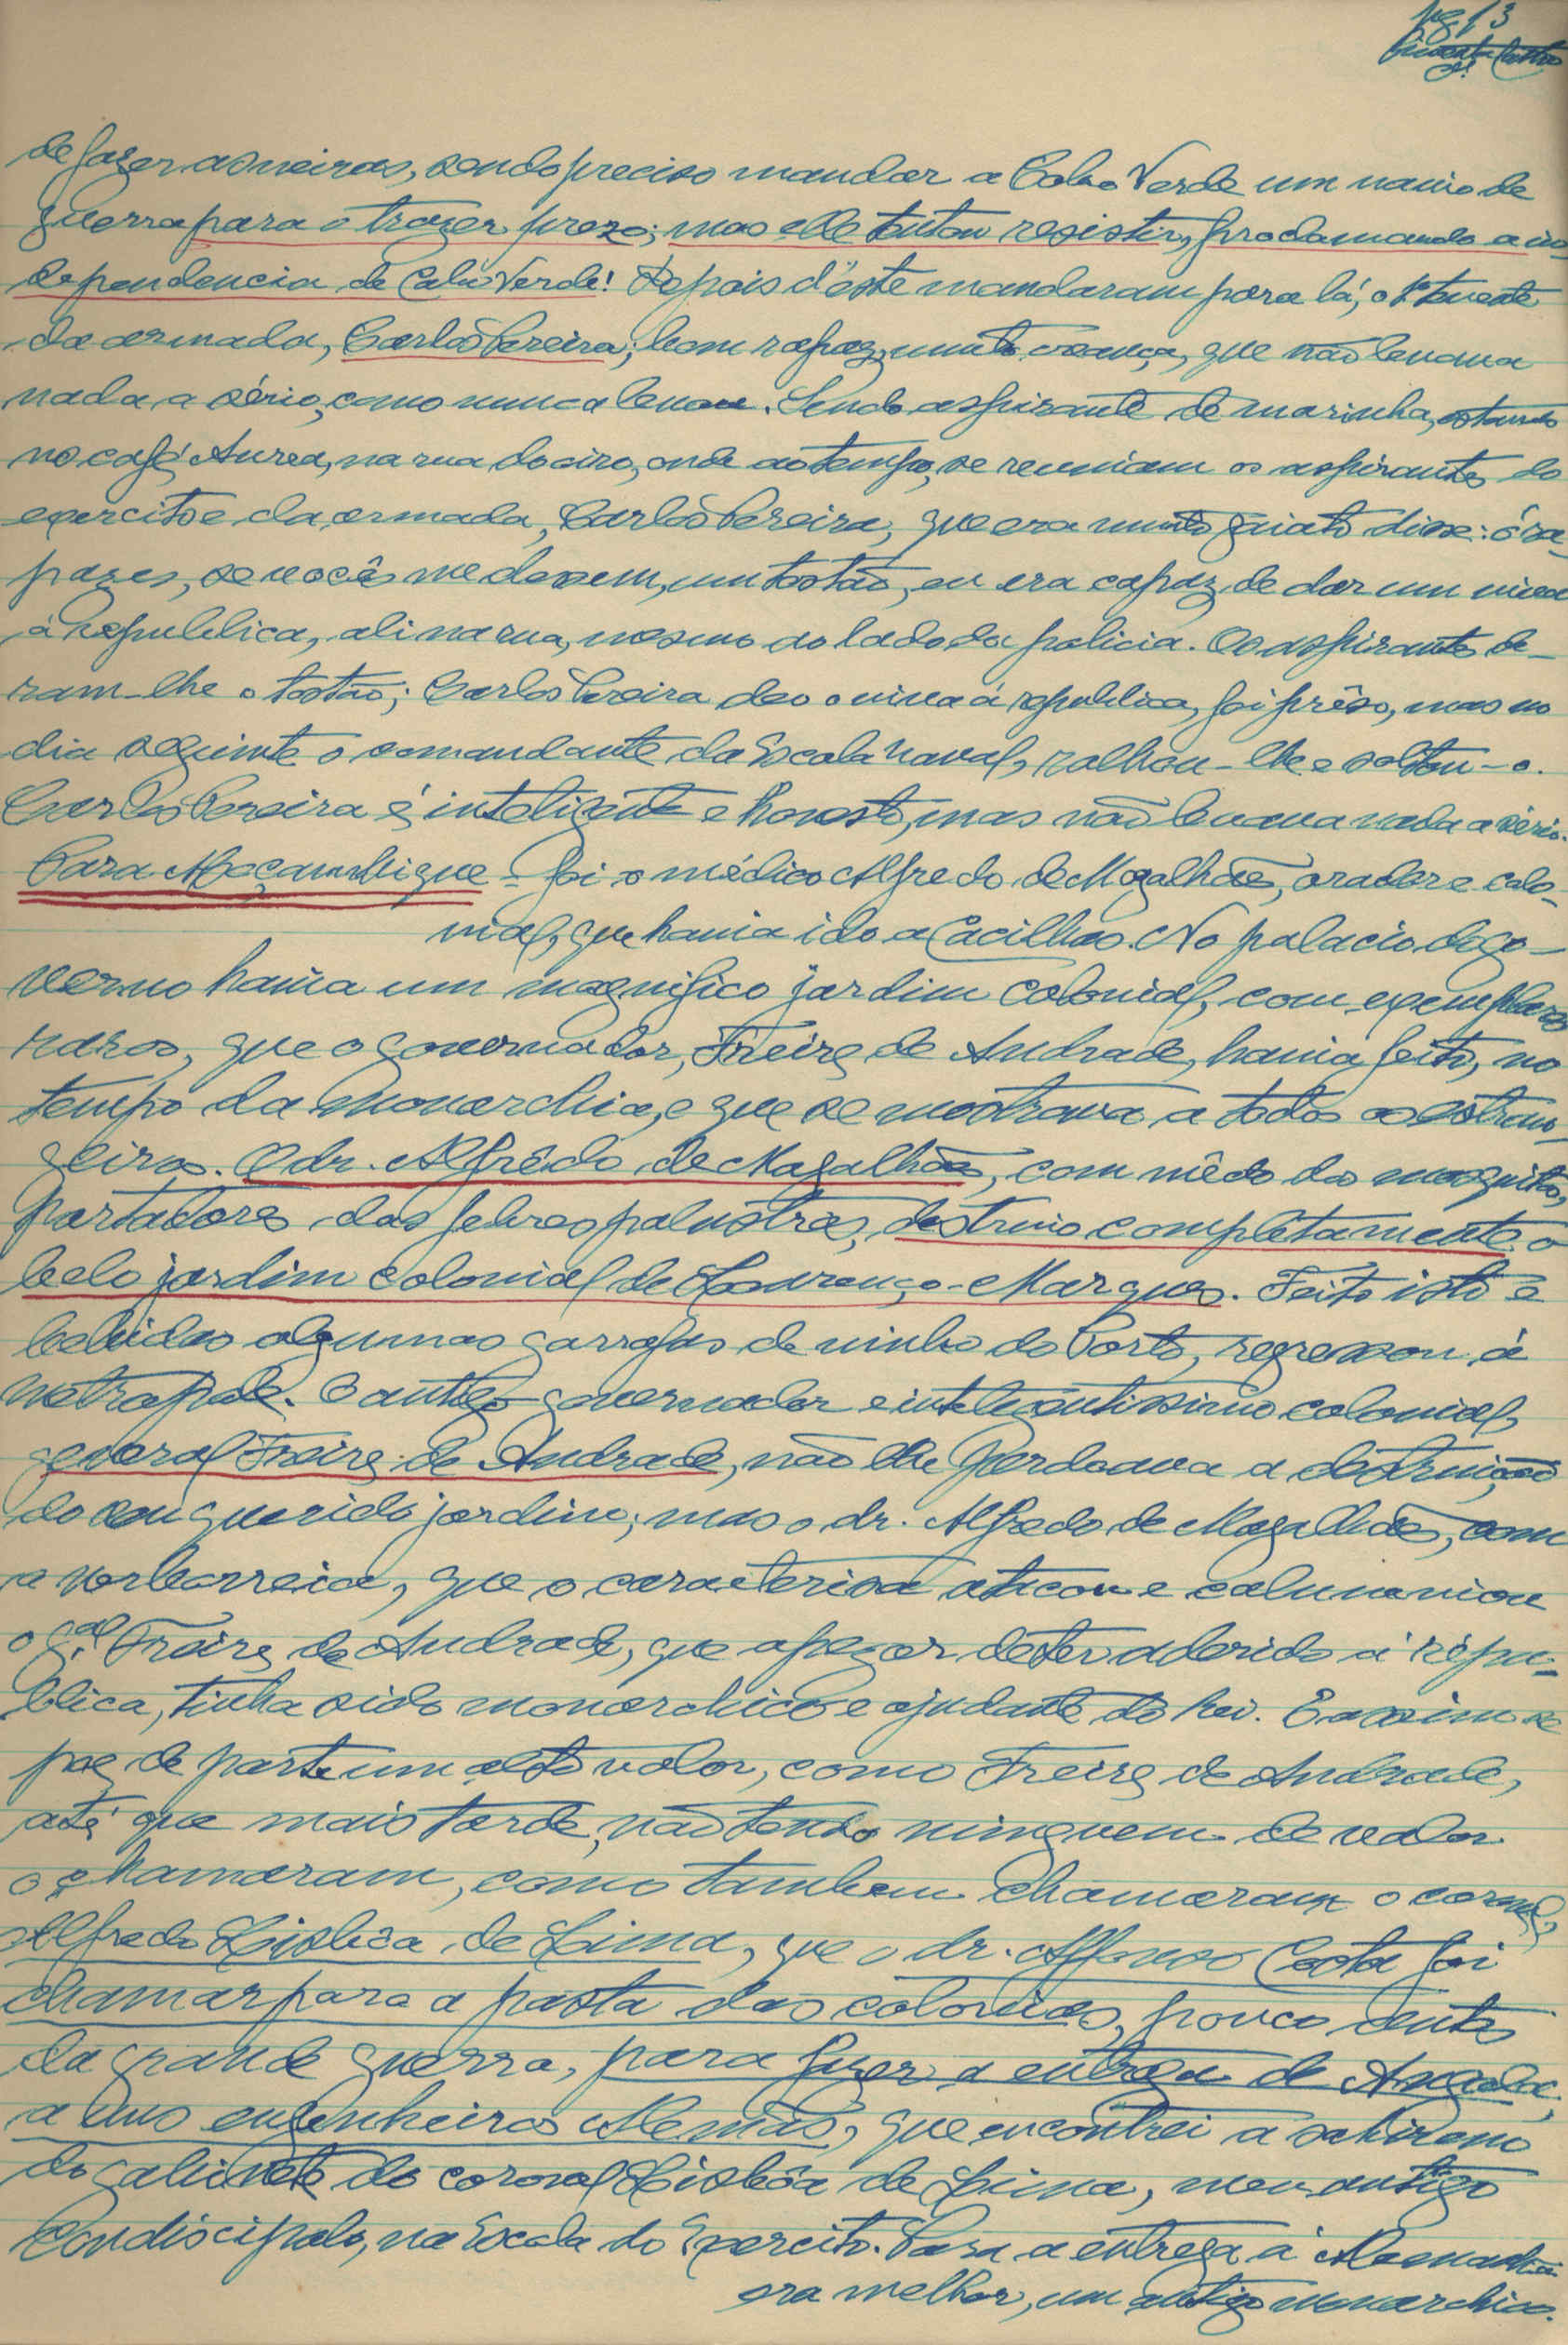 pg 13
de fazer asneiras, sendo preciso mandar a Cabo Verde um navio de
guerra para o trazer prezo; mas elle tentou resistir, proclamando a in-
dependencia de Cabo Verde! Depois d'éste mandaram para lá, o 1º tenente
da armada, Carlos Pereira; bom rapaz, muito creança, que não levava
nada a sério, como nunca levou. Sendo aspirante de marinha, estando
no café Aurea, na rua do oiro, onde ao tempo, se reuniam os aspirantes do
exercito e da armada, Carlos Pereira, que era muito gaiato disse: ó ra-
pazes, se vocês me dessem, um tostão, eu era capaz, de dar um viva
á Republica, ali na rua, mesmo ao lado da policia. Os aspirantes de-
ram-lhe o tostão; Carlos Pereira deo o viva á republica, foi prêso, mas no
dia seguinte o comandante da Escola Naval, ralhou-lhe e soltou-o.
Carlos Pereira é inteligente e honesto, mas não levava nada a sério.
Para Moçambique - foi o médico Alfredo de Magalhães, orador e colo-
nial, que havia ido a Cacilhas. No palacio do go-
verno havia um magnifico jardim colonial, com exemplares
raros, que o governador, Freire de Andrade, havia feito, no
tempo da monarchia, e que se mostrava a todos os estran-
geiros. O dr. Alfrêdo de Magalhães, com mêdo dos mosquitos,
portadores das febres palustres, destruio completamente o
belo jardim colonial de Lourenço-Marques. Feito isto e
bebidas algumas garrafas de vinho do Porto, regressou á
metropole. O antigo governador e inteligentissimo colonial,
general Freire de Andrade, não lhe perdoava a destruição
do seu querido jardim; mas o dr. Alfredo de Magalhães, com
a verborreia, que o caracterisa atacou e calumniou
o gal. Freire de Andrade, que apezar de ter aderido á repu-
blica, tinha sido monarchico e ajudante do Rei. E assim se
poz de parte um alto valor, como Freire de Andrade,
até que mais tarde, não tendo ninguem de valor
o chamaram, como tambem chamaram o coronel,
Alfredo Lisbôa de Lima, que o dr. Affonso Costa foi
chamar para a pasta das colonias, pouco antes
da grande guerra, para fazer a entrega de Angola,
a uns engenheiros Alemães, que encontrei a sahirem
do gabinete do coronel Lisbôa de Lima, meu antigo
condiscipulo, na Escola do Exercito. Para a entrega á Alemanha
era melhor, um antigo monarchico.